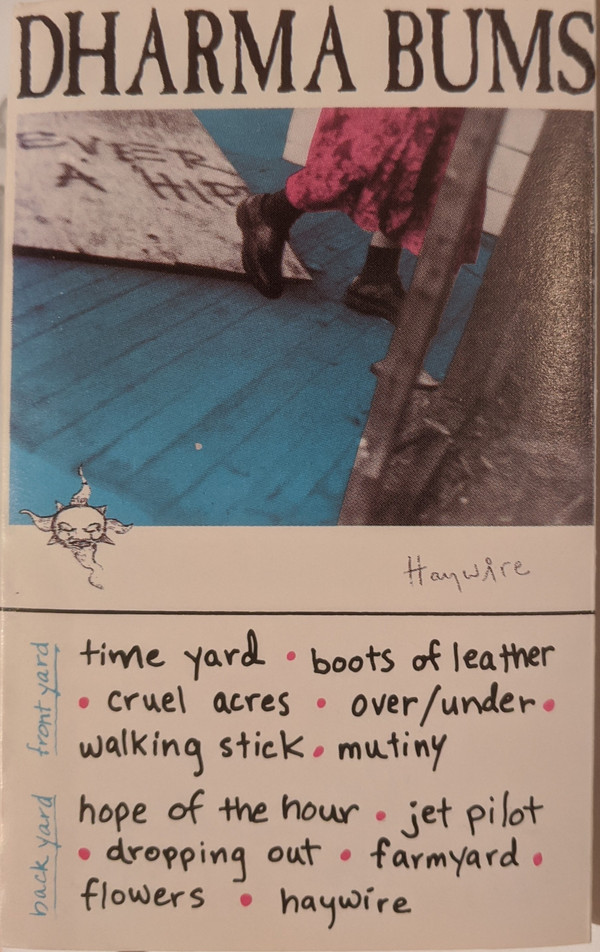 DHARMA BUMS
EVER
A HIP
Haywire
front yard
time yard • boots of leather
• cruel acres • over/under •
walking stick • mutiny
back yard
hope of the hour • jet pilot
• dropping out • farmyard •
flowers • haywire